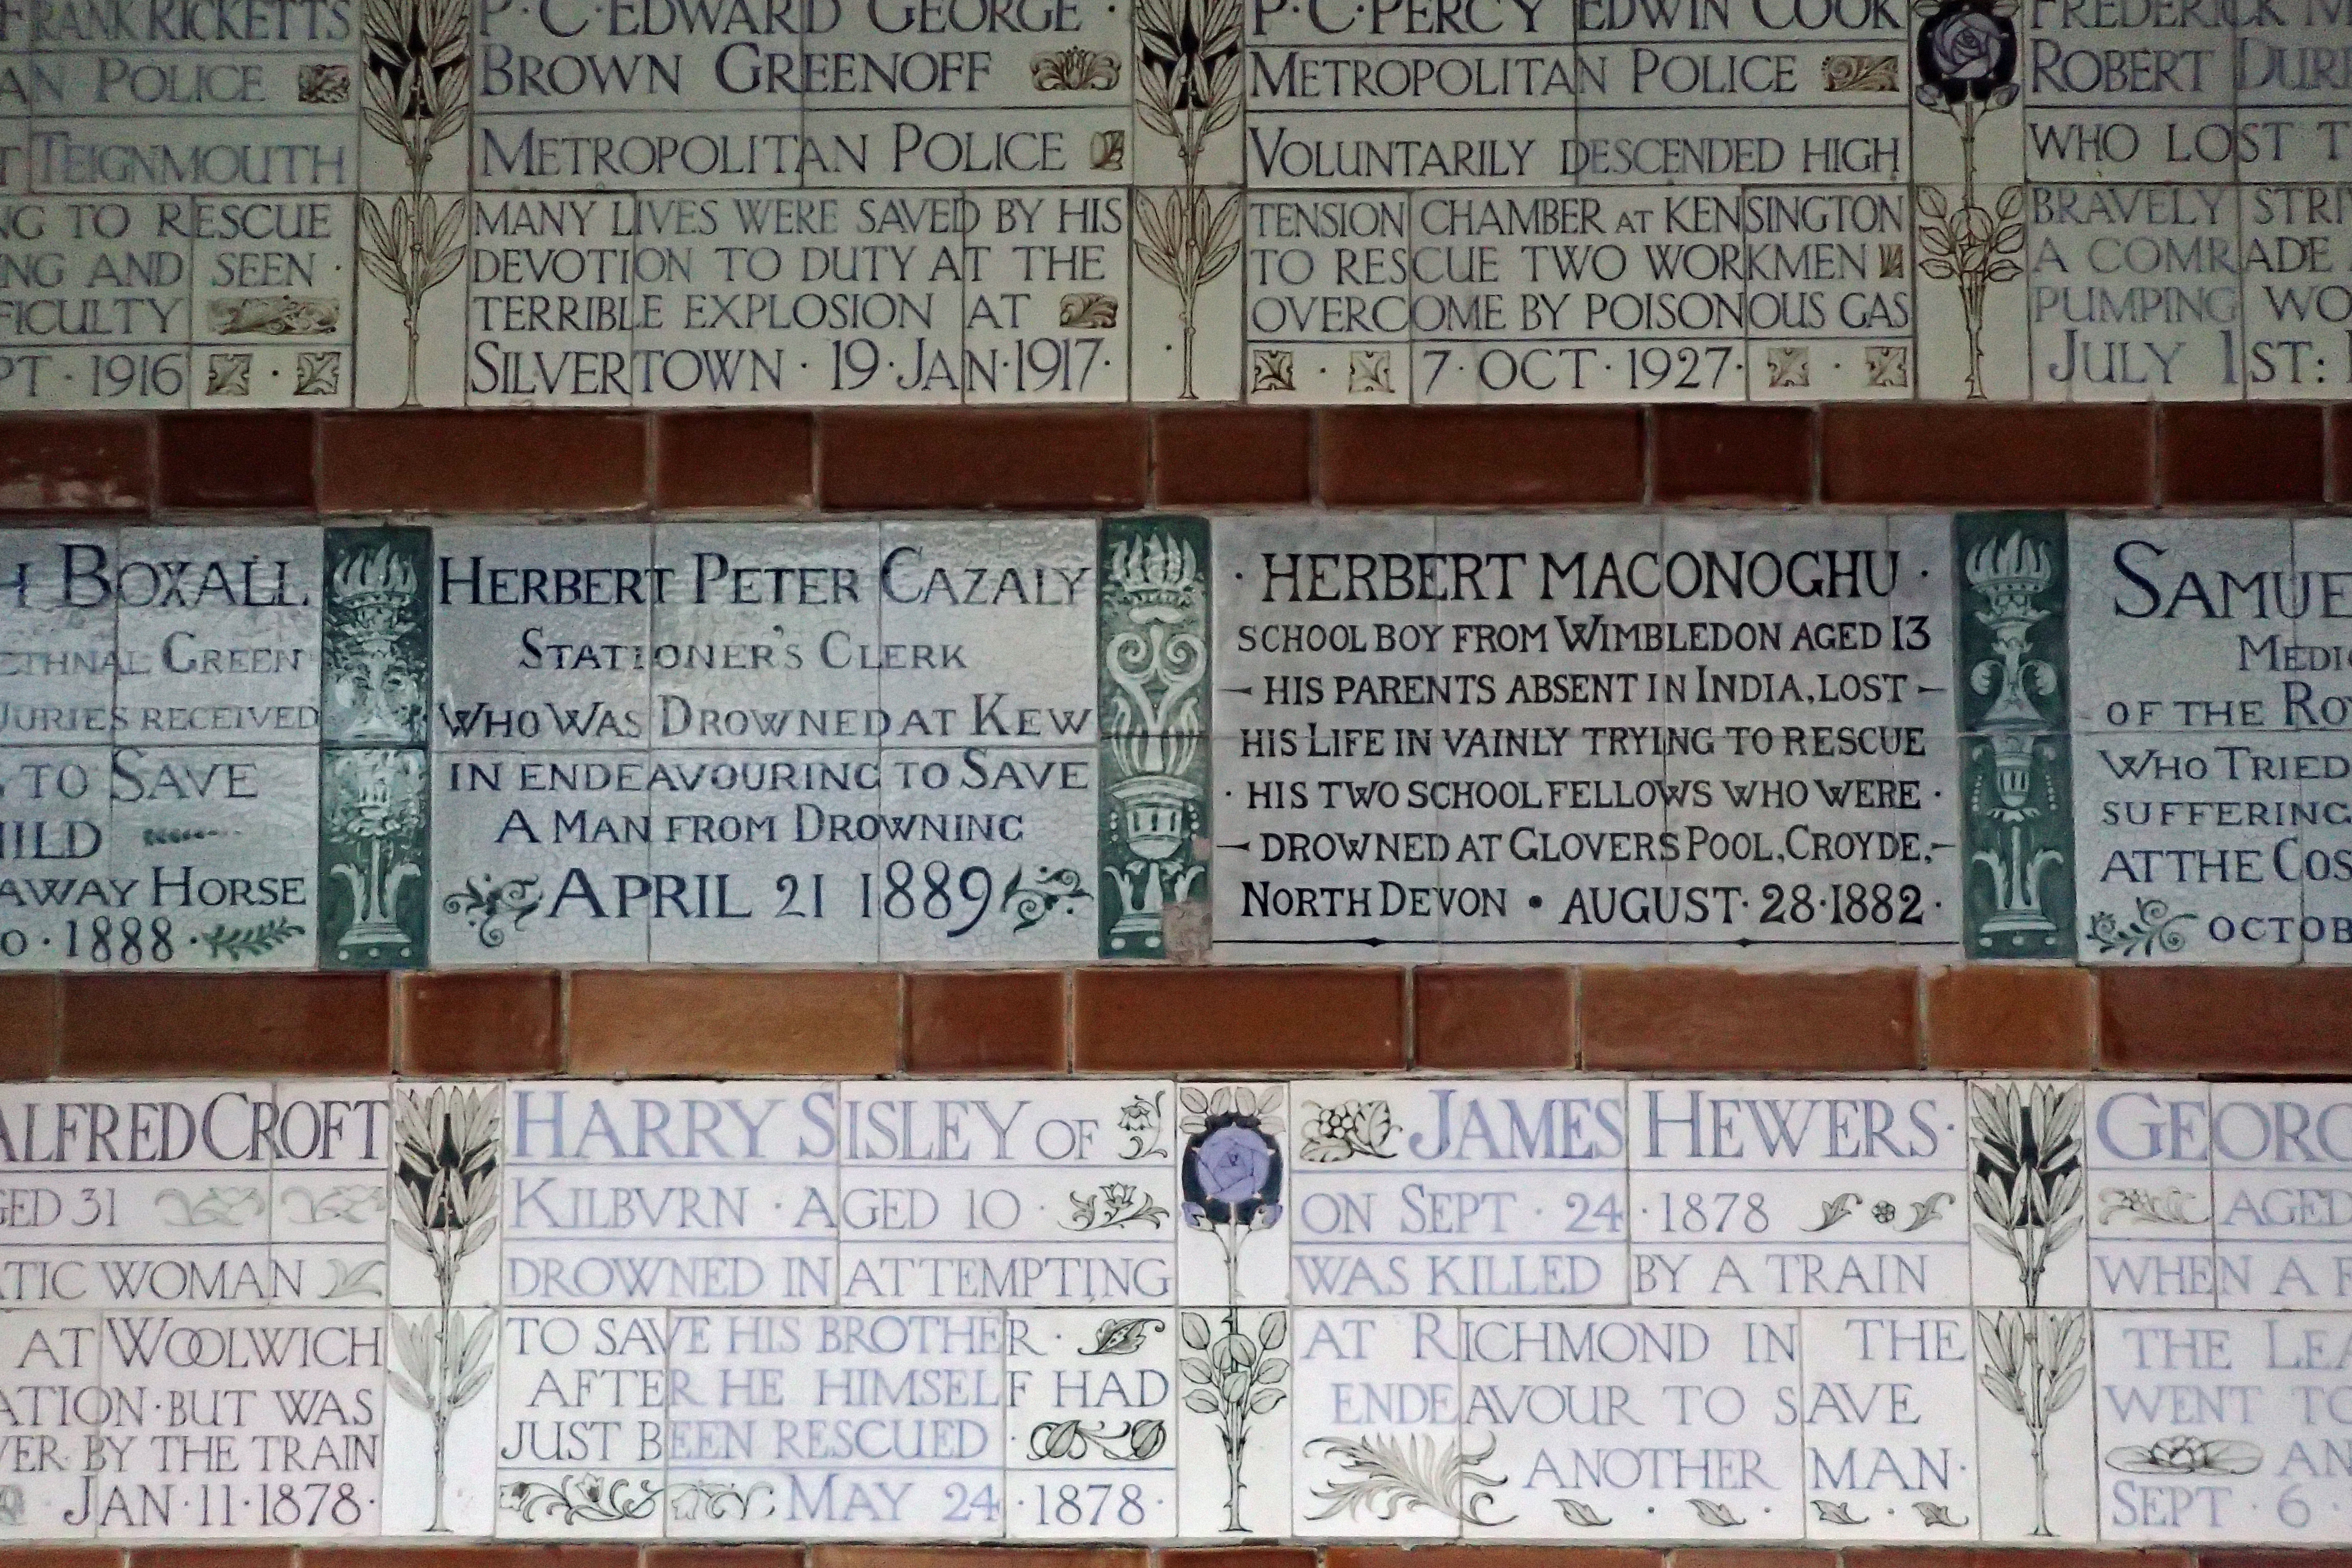 FRANK RICKETTS
AN POLICE
TEIGNMOUTH
NG TO RESCUE
ING AND SEEN ·
FICULTY
PT · 1916
P·C·EDWARD GEORGE ·
BROWN GREENOFF
METROPOLITAN POLICE
MANY LIVES WERE SAVED BY HIS
DEVOTION TO DUTY AT THE
TERRIBLE EXPLOSION AT
SILVERTOWN · 19·JAN·1917·
P·C·PERCY EDWIN COOK
METROPOLITAN POLICE
VOLUNTARILY DESCENDED HIGH
TENSION CHAMBER AT KENSINGTON
TO RESCUE TWO WORKMEN
OVERCOME BY POISONOUS GAS
· 7·OCT·1927· ·
FREDERICK
ROBERT DUR
WHO LOST T
BRAVELY STRI
A COMRADE
PUMPING WO
JULY 1ST:
H BOXALL
ETHNAL GREEN
JURIES RECEIVED
TO SAVE
HILD
AWAY HORSE
0·1888·
HERBERT PETER CAZALY
STATIONER'S CLERK
WHO WAS DROWNED AT KEW
IN ENDEAVOURING TO SAVE
A MAN FROM DROWNING
APRIL 21 1889
· HERBERT MACONOGHU ·
SCHOOL BOY FROM WIMBLEDON AGED 13
HIS PARENTS ABSENT IN INDIA, LOST
HIS LIFE IN VAINLY TRYING TO RESCUE
· HIS TWO SCHOOL FELLOWS WHO WERE ·
DROWNED AT GLOVERS POOL, CROYDE,
NORTH DEVON • AUGUST·28·1882·
SAMUE
MEDIC
OF THE RO
WHO TRIED
SUFFERING
AT THE COS
OCTOB
ALFRED CROFT
GED 31
TIC WOMAN
AT WOOLWICH
ATION·BUT WAS
VER BY THE TRAIN
JAN·11·1878·
HARRY SISLEY OF
KILBVRN · AGED 10 ·
DROWNED IN ATTEMPTING
TO SAVE HIS BROTHER ·
AFTER HE HIMSELF HAD
JUST BEEN RESCUED ·
MAY 24 · 1878 ·
JAMES HEWERS·
ON SEPT · 24 · 1878
WAS KILLED BY A TRAIN
AT RICHMOND IN THE
ENDEAVOUR TO SAVE
ANOTHER MAN·
GEORG
AGED
WHEN A
THE LEA
WENT TO
AN
SEPT · 6 ·